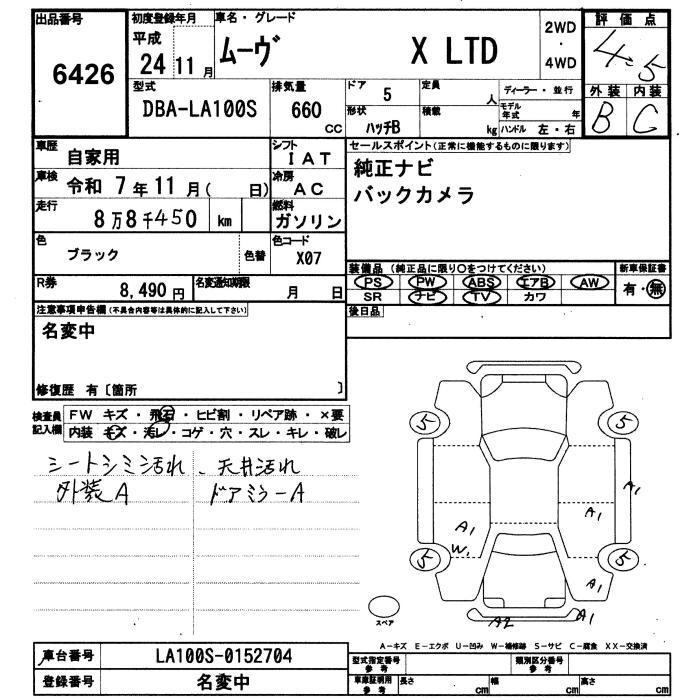 出品番号 6426
初度登録年月 平成 24 11月
車名・グレード ムーヴ X LTD
2WD ・ 4WD
評価点 4.5
外装 B 内装 C
型式 DBA-LA100S
排気量 660 CC
ドア 5
定員 人
形状 ハッチB
積載 kg
ディーラー・並行
モデル年式 年
ハンドル 左・右
車歴 自家用
シフト IAT
車検 令和 7年 11月( 日)
冷房 AC
走行 8万8千450 km
燃料 ガソリン
色 ブラック 色替
色コード X07
R券 8,490円
名変通知期限 月 日
セールスポイント(正常に機能するものに限ります)
純正ナビ
バックカメラ
装備品 (純正品に限り○をつけてください)
PS PW ABS エアB AW
SR ナビ TV カワ
新車保証書
有・無
後日品
注意事項申告欄(不具合内容等は具体的に記入して下さい)
名変中
修復歴 有〔箇所 〕
検査員記入欄
FW キズ・飛石・ヒビ割・リペア跡・×要
内装 キズ・汚レ・コゲ・穴・スレ・キレ・破レ
シートシミ汚れ、天井汚れ
外装A ドアミラーA
5 5
A1
A1 A1
W1
5 5
A1
A2 A1
スペア
A-キズ E-エクボ U-凹み W-補修跡 S-サビ C-腐食 XX-交換済
車台番号 LA100S-0152704
登録番号 名変中
型式指定番号 参考
類別区分番号 参考
車庫証明用 参考
長さ cm 幅 cm 高さ cm